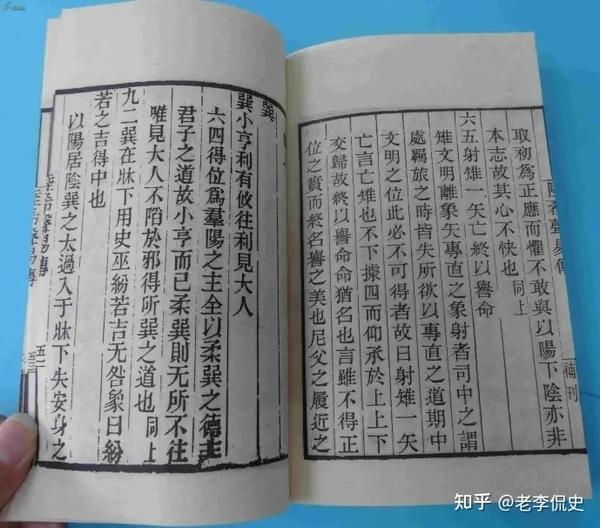 陸希聲易傳
補刊
取初爲正應而懼不敢與以陽下陰亦非
本志故其心不快也同上
六五射雉一矢亡終以譽命
雉文明離象矢專直之象射者司中之謂
處羈旅之時皆失所欲以專直之道期中
文明之位此必不可得者故曰射雉一矢
亡言亡雉也不下據四而仰承於上上下
交歸故終以譽命命猶名也言雖不得正
位之實而終名譽之美也尼父之履近之
巽
巽小亨利有攸往利見大人
六四得位爲羣陽之主全以柔巽之德
君子之道故小亨而已柔巽則无所不往
唯見大人不陷於邪得所巽之道也同上
九二巽在牀下用史巫紛若吉无咎象曰紛
若之吉得中也
以陽居陰巽之太過入于牀下失安身之
陸希聲易傳
知乎 @老李侃史